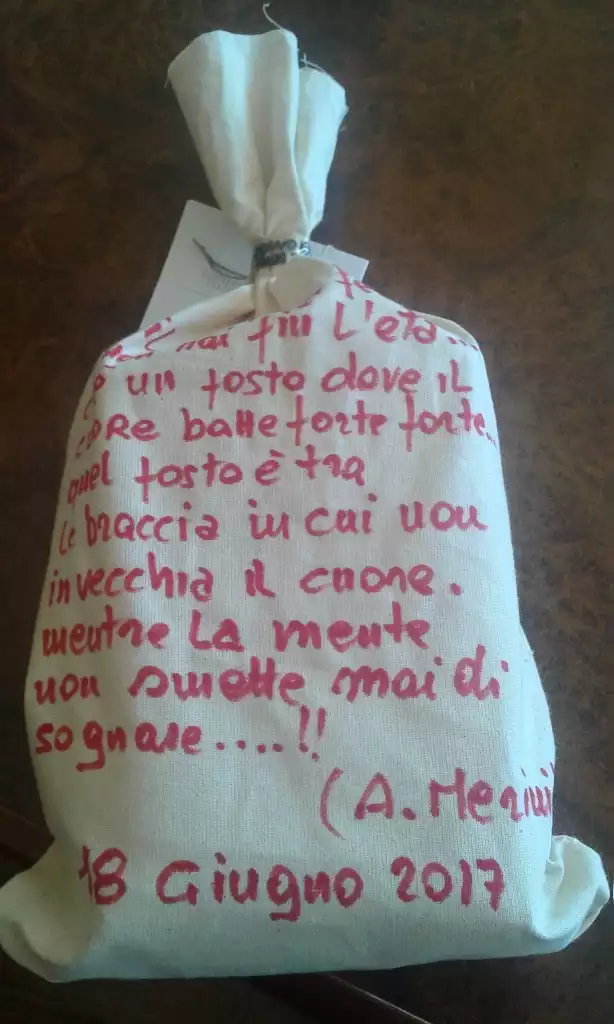 più L'età...
è un posto dove il
cuore batte forte forte...
quel posto è tra
le braccia in cui non
invecchia il cuore.
mentre La mente
non smette mai di
sognare....!!
(A. Merini
18 Giugno 2017